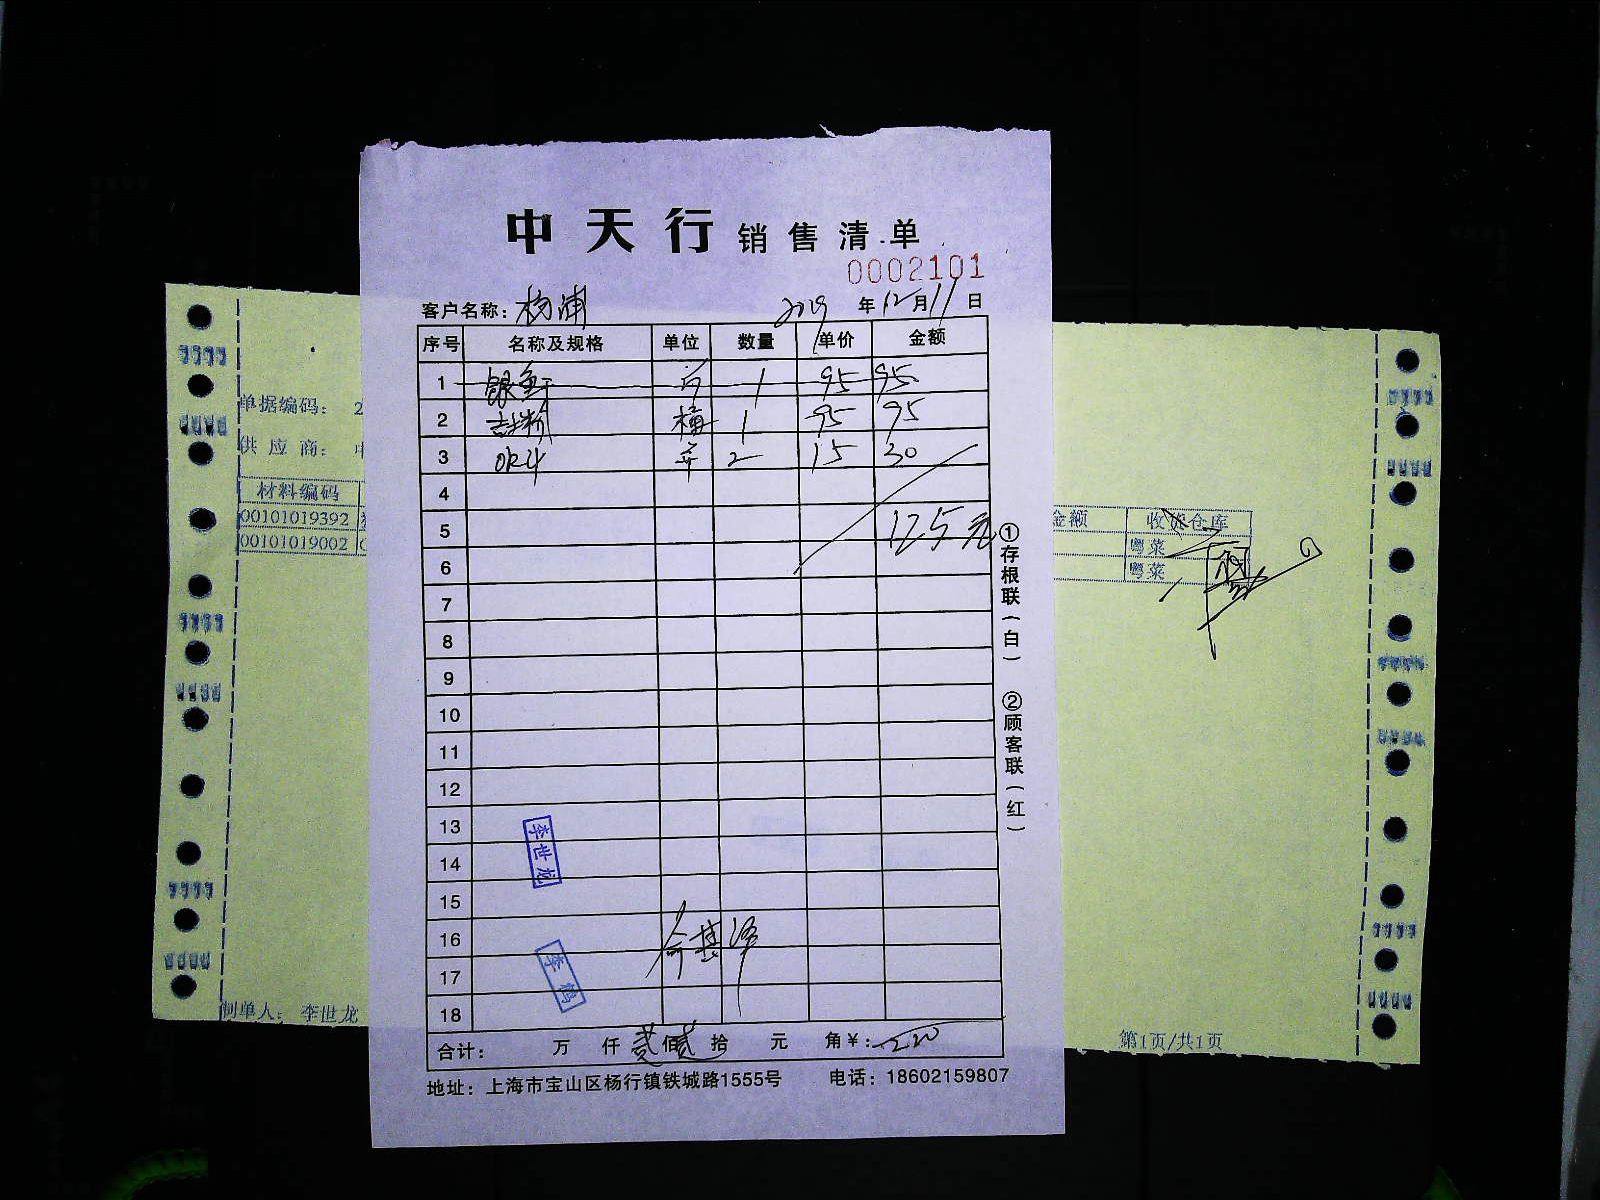 中天行 销售清单
0002101
客户名称: 杨浦 2019年12月11日
序号 名称及规格 单位 数量 单价 金额
1 银鱼干 1 95 95
2 吉士粉 桶 1 95 95
3 OK汁 2 15 30
4
5 125元
6
7
8
9
10
11
12
13
14
15
16
17
18
李世龙
李鹤
合计: 万 仟 贰佰贰拾 元 角¥: 220
地址: 上海市宝山区杨行镇铁城路1555号 电话: 18602159807
①存根联(白) ②顾客联(红)
单据编码: 2
供应商: 中
材料编码
00101019392
00101019002
制单人: 李世龙
金额 收货仓库
粤菜
粤菜
第1页/共1页